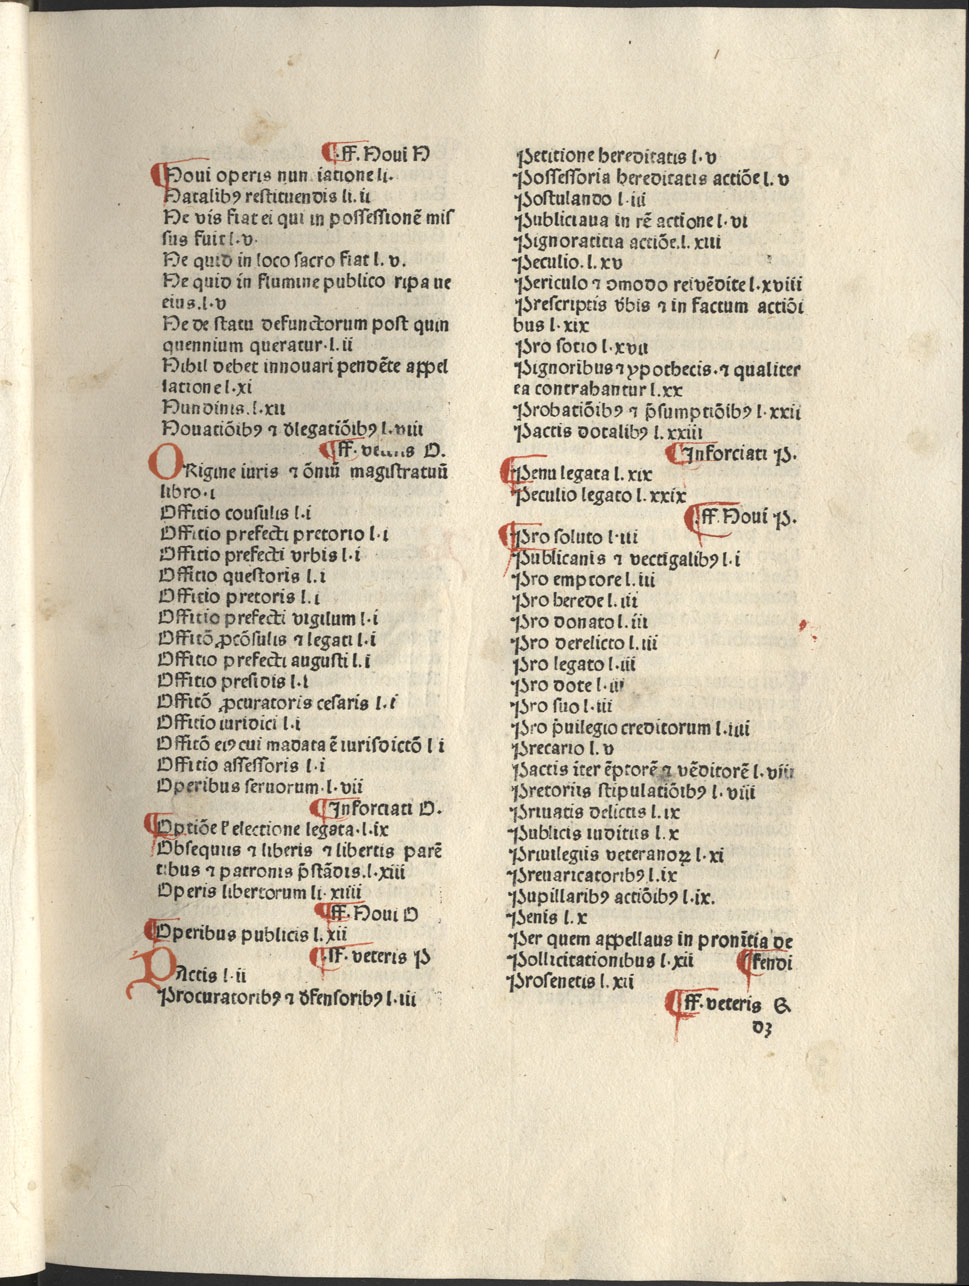 ¶.ff. Noui N
Noui operis nun iatione li.
Natalibꝰ restituendis li. ii
Ne vis fiat ei qui in possessionē mis
sus fuit l. v.
Ne quid in loco sacro fiat l. v.
Ne quid in flumine publico ripa ue
eius. l. v
Ne de statu defunctorum post quin
quennium queratur. l. ii
Nihil debet innouari pendēte appel
latione l. xi
Nundinis. l. xii
Nouatiōibꝰ ⁊ dlegatiōibꝰ l. viii
¶ff. O.
ORigine iuris ⁊ ōniū magistratuū
libro. i
Officio cousulis l. i
Officio prefecti pretorio l. i
Officio prefecti vrbis l. i
Officio questoris l. i
Officio pretoris l. i
Officio prefecti vigilum l. i
Officō ꝓcōsulis ⁊ legati l. i
Officio prefecti augusti l. i
Officio presidis l. i
Officō ꝓcuratoris cesaris l. i
Officio iuridici l. i
Officō eiꝰ cui madata ē iurisdictō l i
Officio assessoris l. i
Operibus seruorum. l. vii
¶Inforciati O.
Optiōe lˀ electione legata. l. ix
Obsequiis ⁊ liberis ⁊ libertis parē
tibus ⁊ patronis p̄stādis. l. xiii
Operis libertorum li. xiiii
¶ff. Noui O
Operibus publicis l. xii
¶.ff. veteris P
PActis l. ii
Procuratoribꝰ ⁊ dfensoribꝰ l. iii
Petitione hereditatis l. v
Possessoria hereditatis actiōe l. v
Postulando l. iii
Publiciaua in rē actione l. vi
Pignoraticia actiōe. l. xiii
Peculio. l. xv
Periculo ⁊ ꝯmodo rei vēdite l. xviii
Prescriptis v̄bis ⁊ in factum actiōi
bus l. xix
Pro socio l. xvii
Pignoribus ⁊ ypothecis. ⁊ qualiter
ea contrahantur l. xx
Probatiōibꝰ ⁊ p̄sumptiōibꝰ l. xxii
Pactis dotalibꝰ l. xxiii
¶Inforciati P.
Penu legata l. xix
Peculio legato l. xxix
¶.ff. Noui P.
Pro soluto l. iii
Publicanis ⁊ vectigalibꝰ l. i
Pro emptore l. iii
Pro herede l. iii
Pro donato l. iii
Pro derelicto l. iii
Pro legato l. iii
Pro dote l. iii
Pro suo l. iii
Pro p̄uilegio creditorum l. iiii
Precario l. v
Pactis īter ēptorē ⁊ vēditorē l. viii
Pretoriis stipulatiōibꝰ l. viii
Priuatis delictis l. ix
Publicis iuditiis l. x
Priuilegiis veteranoꝝ l. xi
Preuaricatoribꝰ l. ix
Pupillaribꝰ actiōibꝰ l. ix.
Penis l. x
Per quem appellaus in pronītia de
Pollicitationibus l. xii ¶fendi
Prosenetis l. xii
¶ff. veteris Q
d3